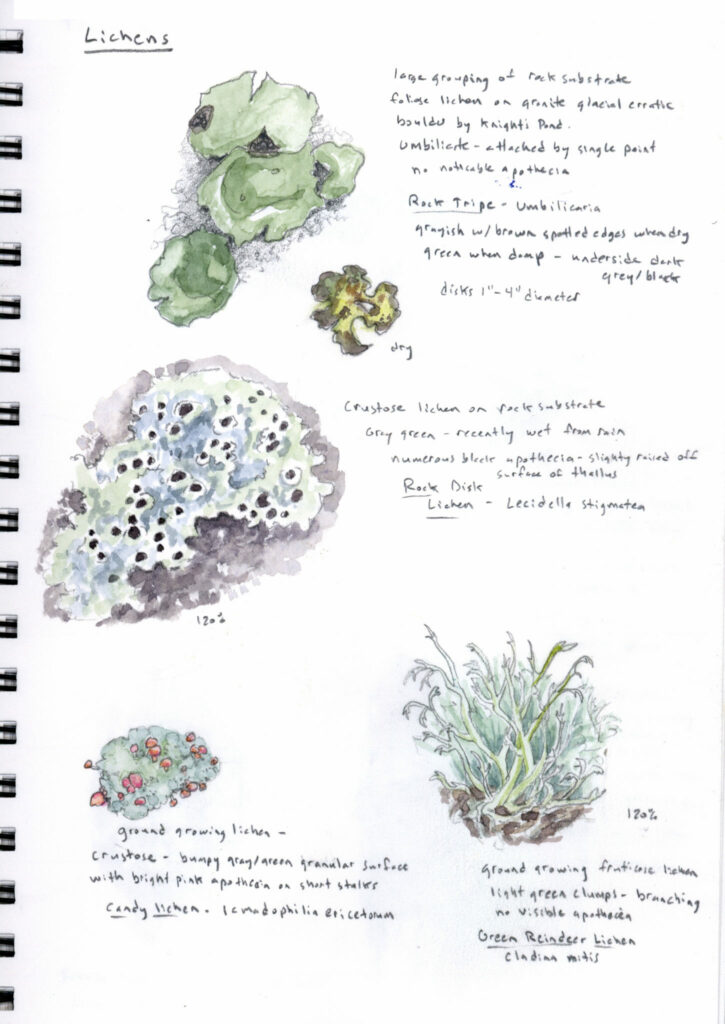 Lichens
large grouping of rock substrate
foliose lichen on granite glacial erratic
bouldr by Knights Pond.
Umbilicate - attached by single point
no noticable apothecia
Rock Tripe - Umbilicaria
grayish w/ brown spotted edges when dry
green when damp - underside dark
grey/black
disks 1" - 4" diameter
dry
Crustose lichen on rock substrate
Gray green - recently wet from rain
numerous black apothecia - slightly raised off
surface of thallus
Rock Disk
Lichen - Lecidella stigmatea
120%
ground growing lichen -
Crustose - bumpy gray/green granular surface
with bright pink apothecia on short stalks
Candy lichen - Icmadophilia ericetorum
120%
ground growing fruticose lichen
light green clumps - branching
no visible apothecia
Green Reindeer Lichen
Cladina mitis